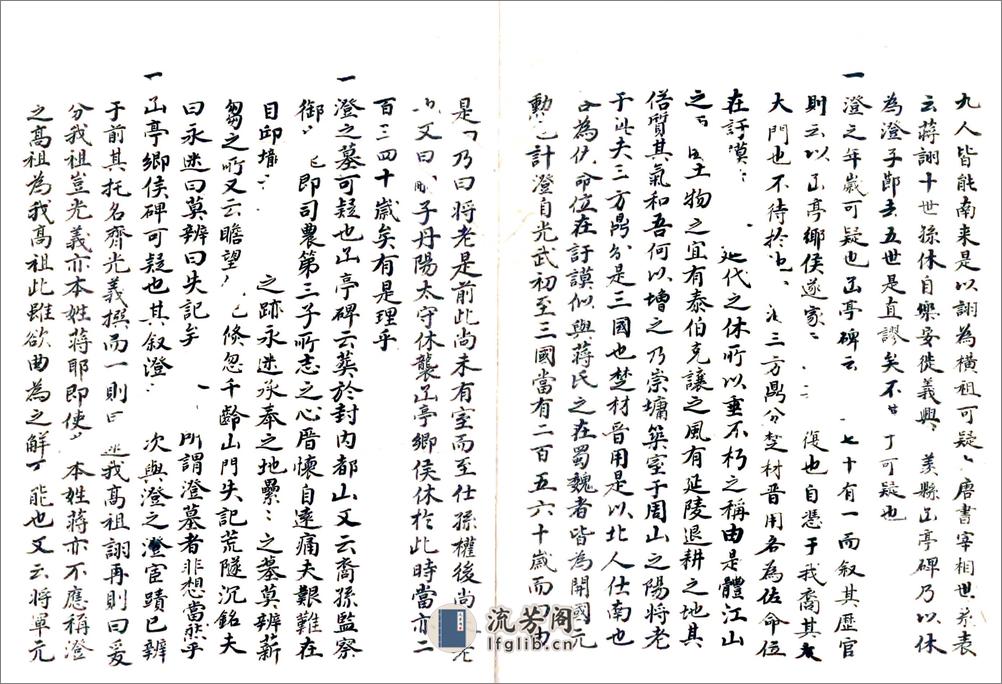 九人皆能南来是以詡為横祖可疑〻唐書宰相世系表
云蔣詡十世孫休自樂安徙義興 義縣㐭亭碑乃以休
為澄子鄿去五世是直謬矣不 可疑也
一澄之年歲可疑也㐭亭碑云 七十有一而叙其歷官
則云以㐭亭鄉侯遂家 復也自憑于我喬其
大門也不待於 三方鼎分楚材晉用各為佐命位
在訏謨 代之休所以垂不朽之稱由是體江山
之 土物之宜有泰伯克讓之風有延陵退耕之地其
俗質其氣和吾何以增之乃崇墉築室于周山之陽將老
于此夫三方鼎分是三國也楚材晉用是以北人仕南也
各為佐命位在訏謨似與蔣氏之在蜀魏者皆為開國元
勳也計澄自光武初至三國當有二百五六十歲而
是乃曰將老是前此尚未有室而至仕孫權後尚 老
又曰 子丹陽太守休襲㐭亭鄉侯休於此時當亦二
百三四十歲矣有是理乎
一澄之墓可疑也㐭亭碑云葬於封内都山又云裔孫監察
御 即司農第三子所志之心厝懷自遠痛夫艱難在
目邱壠 之跡永迷承奉之地纍〻之墓莫辨薪
芻之所又云瞻望 已倏忽千齡山門失記荒隧沉銘夫
曰永迷曰莫辨曰失記矣 所謂澄墓者非想當然乎
一㐭亭鄉侯碑可疑也其叙澄 次與澄之澄宦蹟已辨
于前其托名齊光義撰而一則曰 我高祖詡再則曰爰
分我祖豈光義亦本姓蔣耶即使 本姓蔣亦不應稱澄
之高祖為我高祖此雖欲曲為之解 能也又云將軍元
流芳阁
lfglib.cn